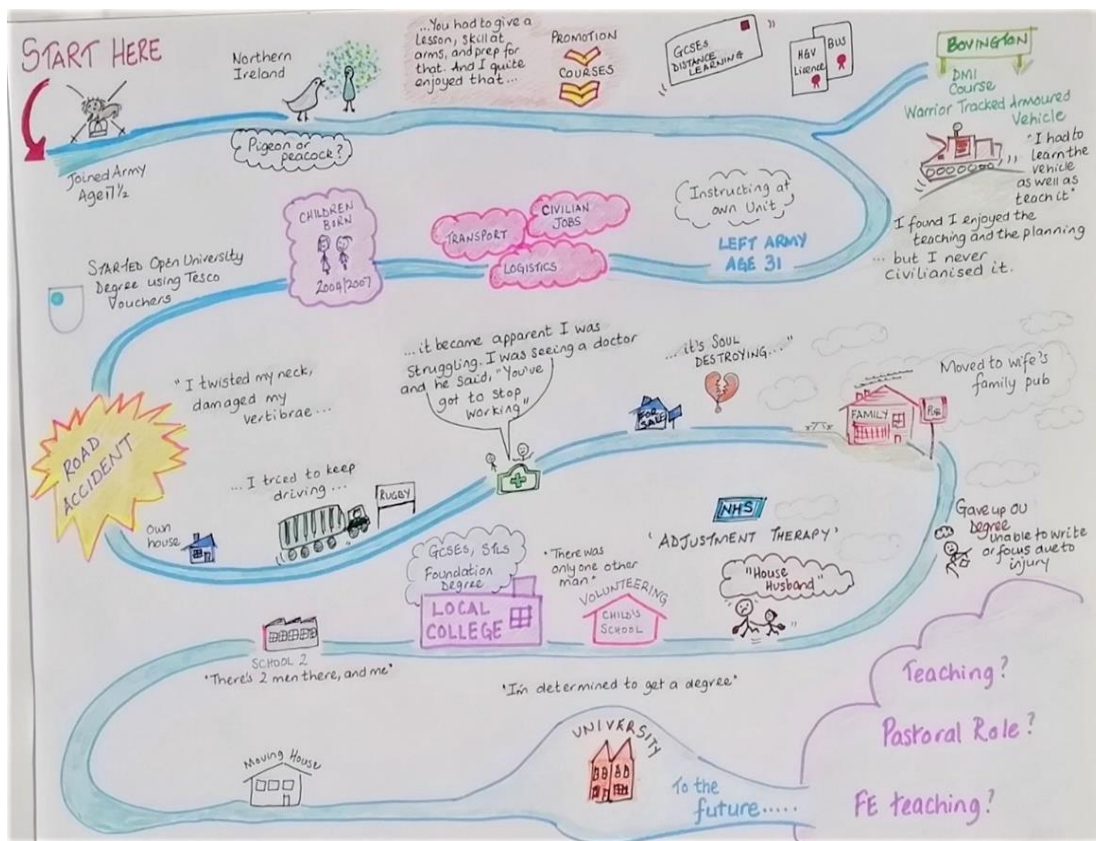 START HERE
Joined Army
Age 17 ½
Northern
Ireland
Pigeon or
peacock?
...You had to give a
lesson, skill at
arms, and prep for
that. And I quite
enjoyed that...
PROMOTION
COURSES
GCSES
DISTANCE
LEARNING
HGV
Licence
BUS
BOVINGTON
DMI
Course
Warrior Tracked Armoured
Vehicle
"I had to
learn the
vehicle
as well as
teach it"
I found I enjoyed the
teaching and the planning
... but I never
civilianised it.
Instructing at
own Unit
LEFT ARMY
AGE 31
CIVILIAN
JOBS
TRANSPORT
LOGISTICS
CHILDREN
BORN
2004/2007
STARTED Open University
Degree using Tesco
Vouchers
ROAD
ACCIDENT
"I twisted my neck,
damaged my
vertibrae...
own
house
...I tried to keep
driving...
RUGBY
...it became apparent I was
struggling. I was seeing a doctor
and he said, "You've
got to stop
working"
FOR
SALE
...it's SOUL
DESTROYING..."
FAMILY
PUB
Moved to wife's
family pub
Gave up OU
Degree
unable to write
or focus due to
injury
NHS
'ADJUSTMENT THERAPY'
"House
Husband"
"There was
only one other
man"
VOLUNTEERING
CHILD'S
SCHOOL
GCSES, STLS
Foundation
Degree
LOCAL
COLLEGE
SCHOOL 2
"There's 2 men there, and me"
"I'm determined to get a degree"
Moving House
UNIVERSITY
To the
future.....
Teaching?
Pastoral Role?
FE teaching?